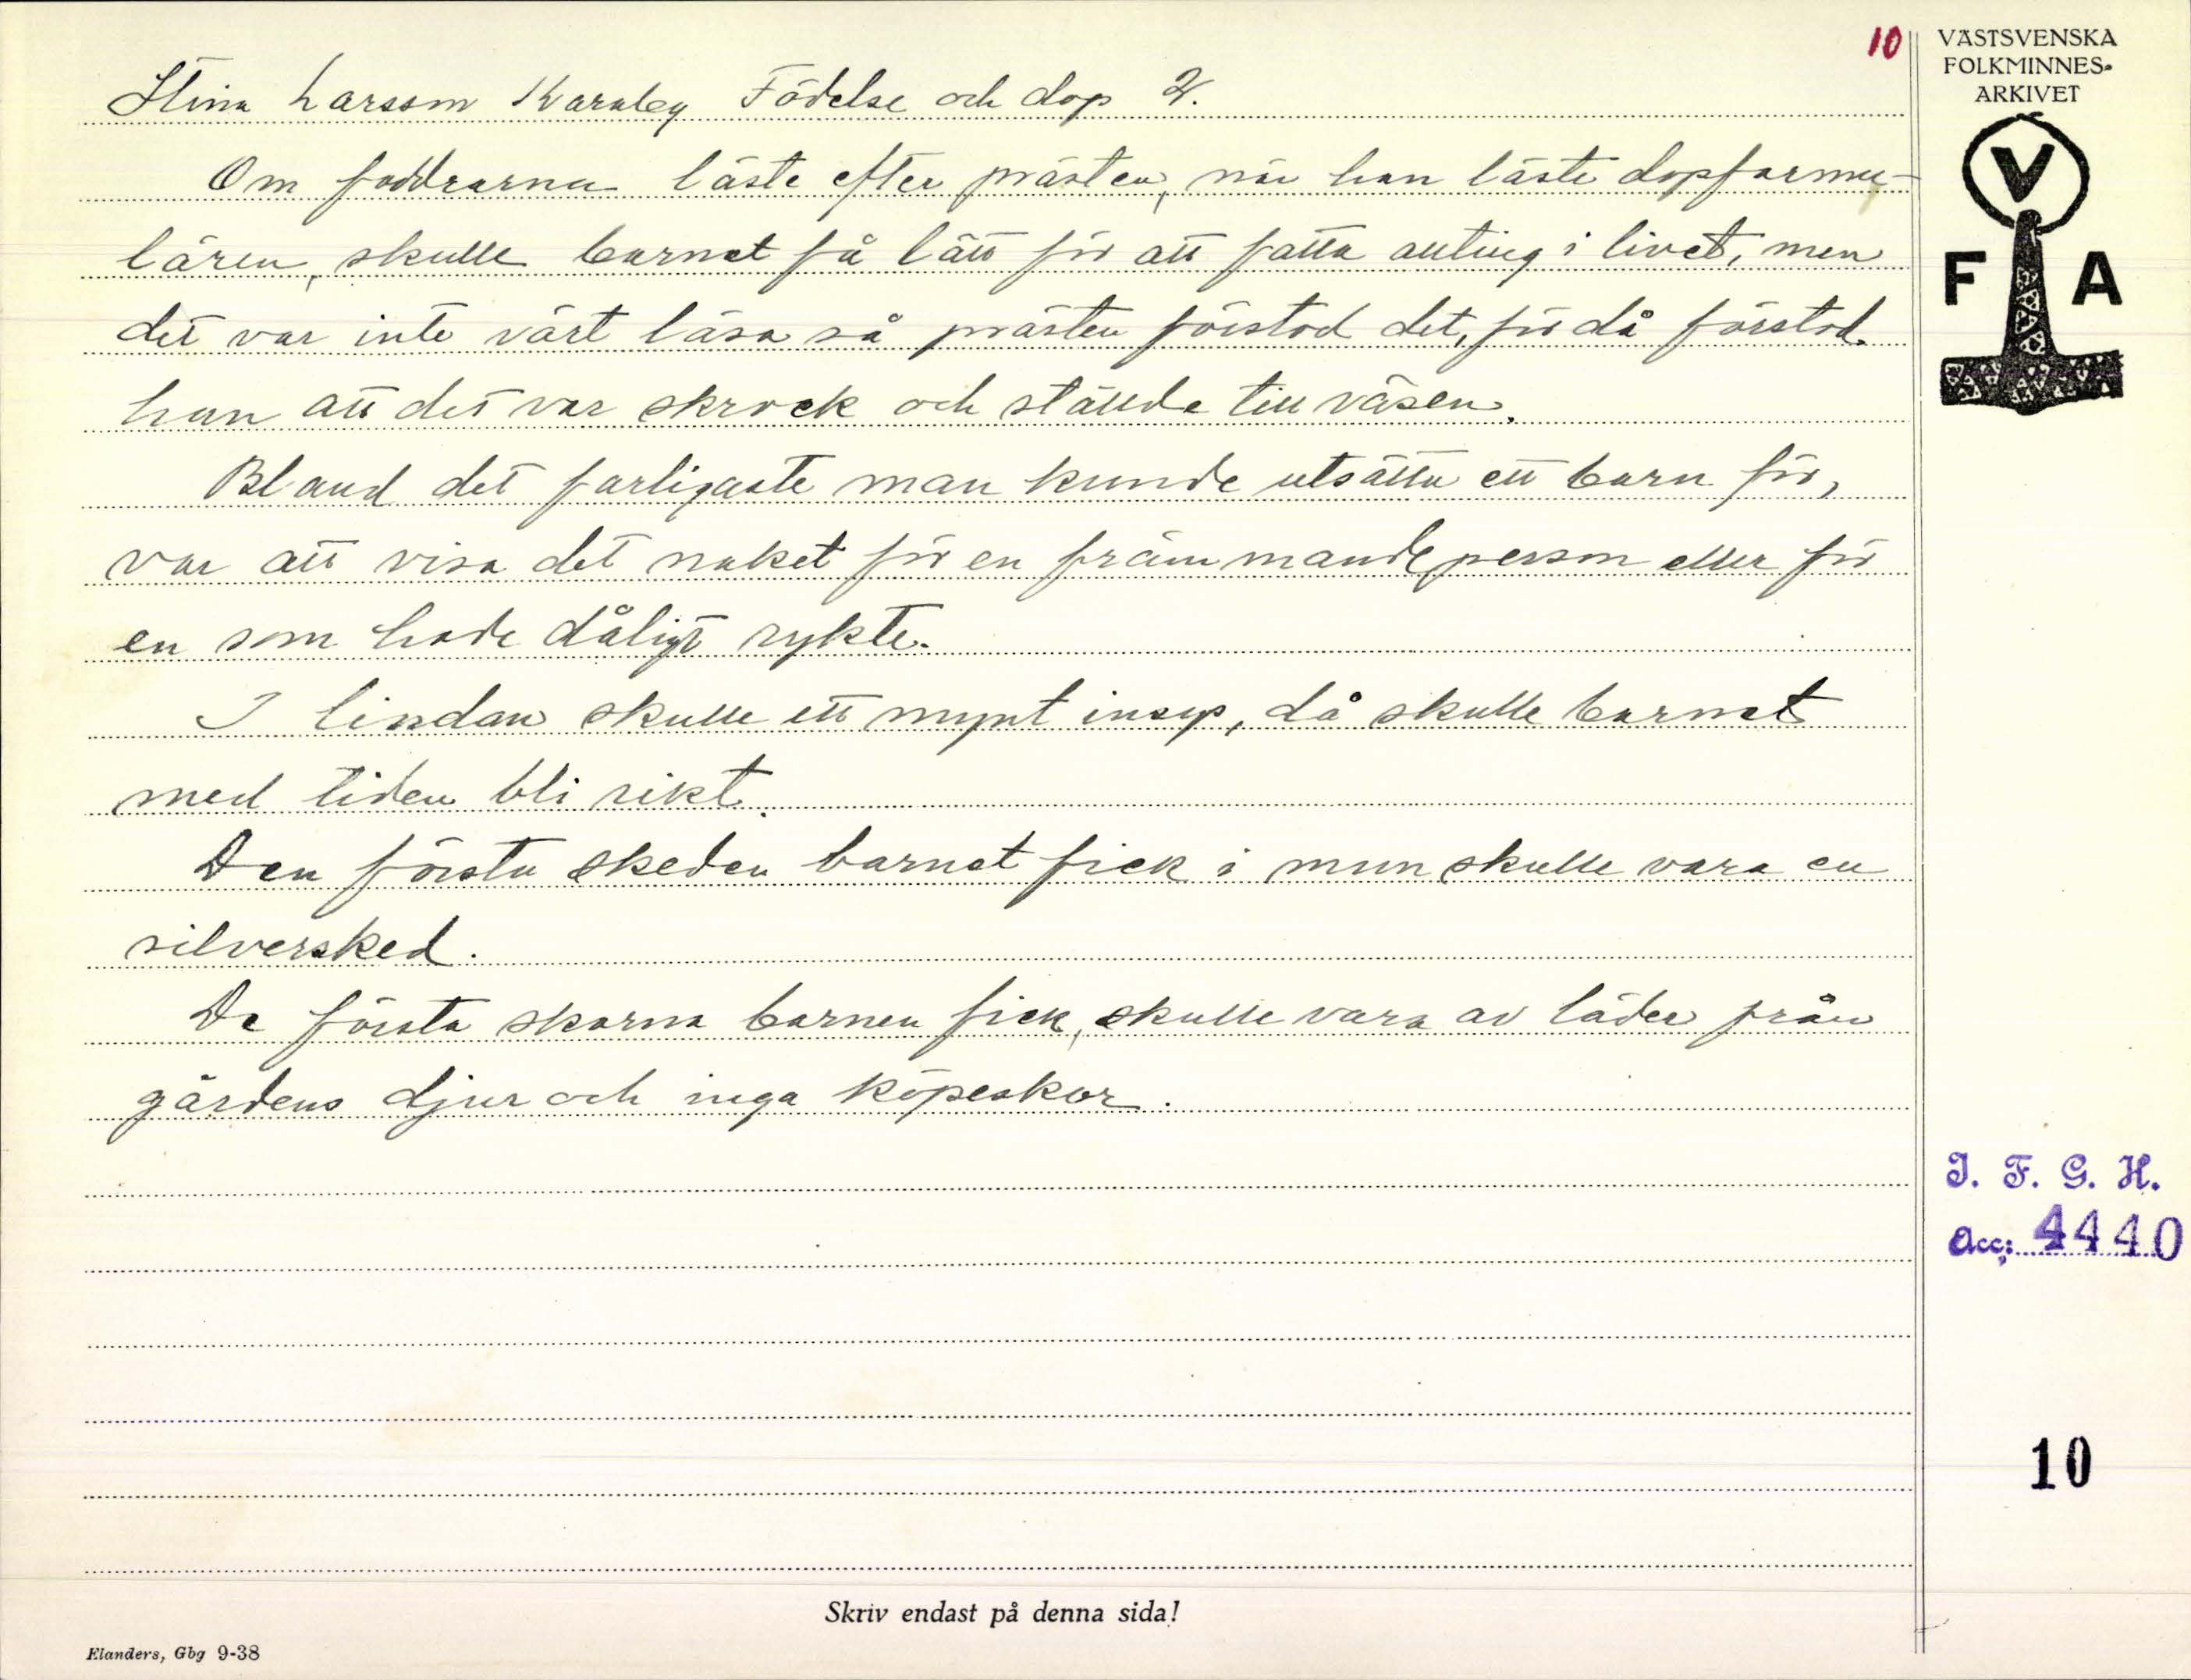 10
VÄSTSVENSKA
FOLKMINNES-
ARKIVET
V
F A
Stina Larsson Karaby Födelse och dop 2.
Om faddrarna läste efter prästen, när han läste dopformu-
lären, skulle barnet få lätt för att fatta allting i livet, men
det var inte värt läsa så prästen förstod det, för då förstod
han att det var skrock och ställde till väsen.
Bland det farligaste man kunde utsätta ett barn för,
var att visa det naket för en främmande person eller för
en som hade dåligt rykte.
I lindan skulle ett mynt insys, då skulle barnet
med tiden bli rikt.
Den första skeden barnet fick i mun skulle vara en
silversked.
De första skorna barnen fick, skulle vara av läder från
gårdens djur och inga köpeskor.
I. F. G. H.
Acc: 4440
10
Skriv endast på denna sida!
Elanders, Gbg 9-38